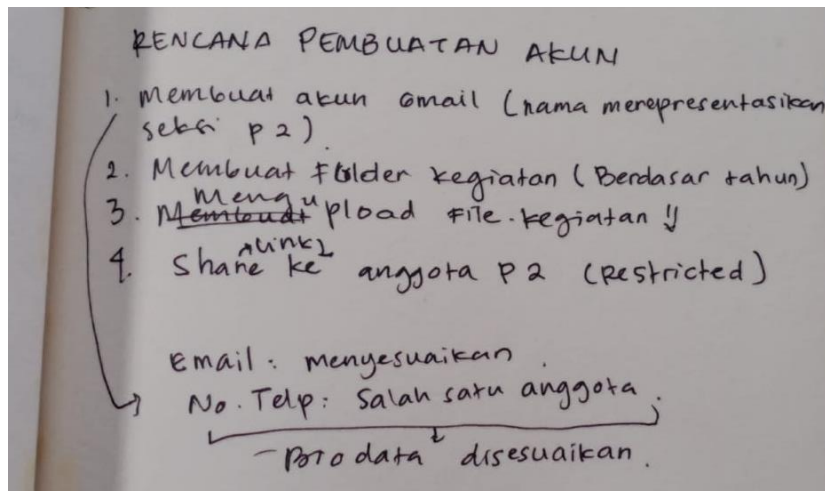 RENCANA PEMBUATAN AKUN
1. Membuat akun Gmail (nama merepresentasikan
seksi P2).
2. Membuat Folder kegiatan (Berdasar tahun)
3. Mengupload File kegiatan
4. Share link ke anggota P2 (Restricted)
Email : menyesuaikan.
No. Telp : Salah satu anggota.
- Biodata disesuaikan.